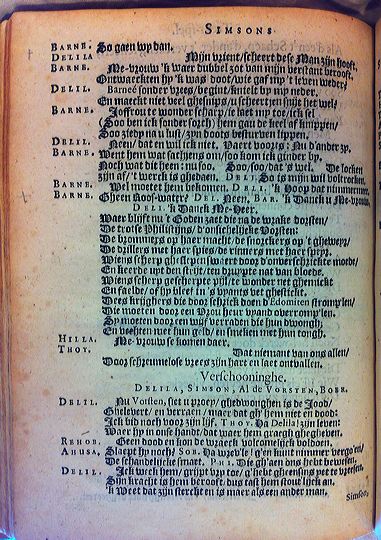 SIMSONS
BARNE. So gaen wy dan.
DELILA Mijn vrient/scheert dese Man zijn hooft,
BARNE. Me-vrouw 'k waer dubbel zot van mijn verstant berooft,
Ontwaeckten hy 'k was doot/wie gaf my 't leven weder?
DELIL. Barneé sonder vrees/begint/knielt by my neder.
En maeckt niet veel ghesnips/u scheert jen snijt het wel/
BARNE. Joffrou te wonder scharp/ie laet my toe/ick sel
(Soo ben ick sonder sorch) hem gan de keel af knippen/
Soo ziedy na u lust/zyn doots besturven lippen.
DELIL. Neen/dat en wil ick niet. Vaert voorts: Nu d'ander zy.
BARNE. Went hem wat sachjens om/soo kom ick ginder by.
Noch wat dit heen: nu soo. Soo/soo/dat's wel. De locken
zijn af/'t werck is ghedaen. DEL. So is mijn wil voltrocken.
BARNE. Wel moetet hem bekomen. DELI. 'k Hoop dat nimmermeer.
BARNE. Gheen Roos-water? DEL. Neen, BAR. 'k Danck u Me-vrouw,
DELI. 'k Danck Me-Heer.
Waer blijft nu 't Goden zaet die na de wrake dorsten/
De trotse Philistijns/d'onsichelijcke Vorsten:
De brommers op haer macht/de snorckers op 't gheweyr/
De drillers met haer spies/de rinners met haer speyr.
Wiens scherp ghesleepen swaert door d'onbeschrickte mode/
En keerde upt den strijt/ten drupte nat van bloede.
Wiens scherp gescherpte pijl/te wonder net ghemickt
En faelde/of hy bleef in 's vyants vet ghestickt.
Dees krijghers die door schrick doen d'Edomiten strompelen/
Die moeten door een Vrou heur vyand overrompelen.
Sy moeten door een wijf verraden die hun dwongh;
En vechten met hun geld/en slechten met hun tongh.
HILLA. Me-vrouw se komen daer.
THOV. Dat niemant van ons allen/
Door schroomelose vrees zijn hart en laet ontvallen.
Verschooninghe.
DELILA, SIMSON, Al de VORSTEN, BOER.
DELIL. Nu Vorsten, siet u proey/ghedwonghen is de Jood/
Ghelevert/en verraen/maer dat ghy hem niet en dood:
Ick bid noch voor zijn lijf. THOV. Ha Delila! zijn leven:
Waer hy in onse handt/dat waer hem graegh ghegheven.
REHOB. Geen dood en kon de wraeck volcomelijck voldoen.
AHUSA. Slaept hy noch? SOB. Ha wreede/g'en kunt nimmer vergoen/
De schandelijcke smaet. PHI. Die ghy aen ons hebt bewesen.
DELIL. Ick weck hem/grijpt vry toe/g'hebt gheensins yet te vreesen,
Sijn kracht is hem berooft/dus tast hem stout lijck an.
'k Weet dat zijn stercht en is maer als een ander man.
Simson,